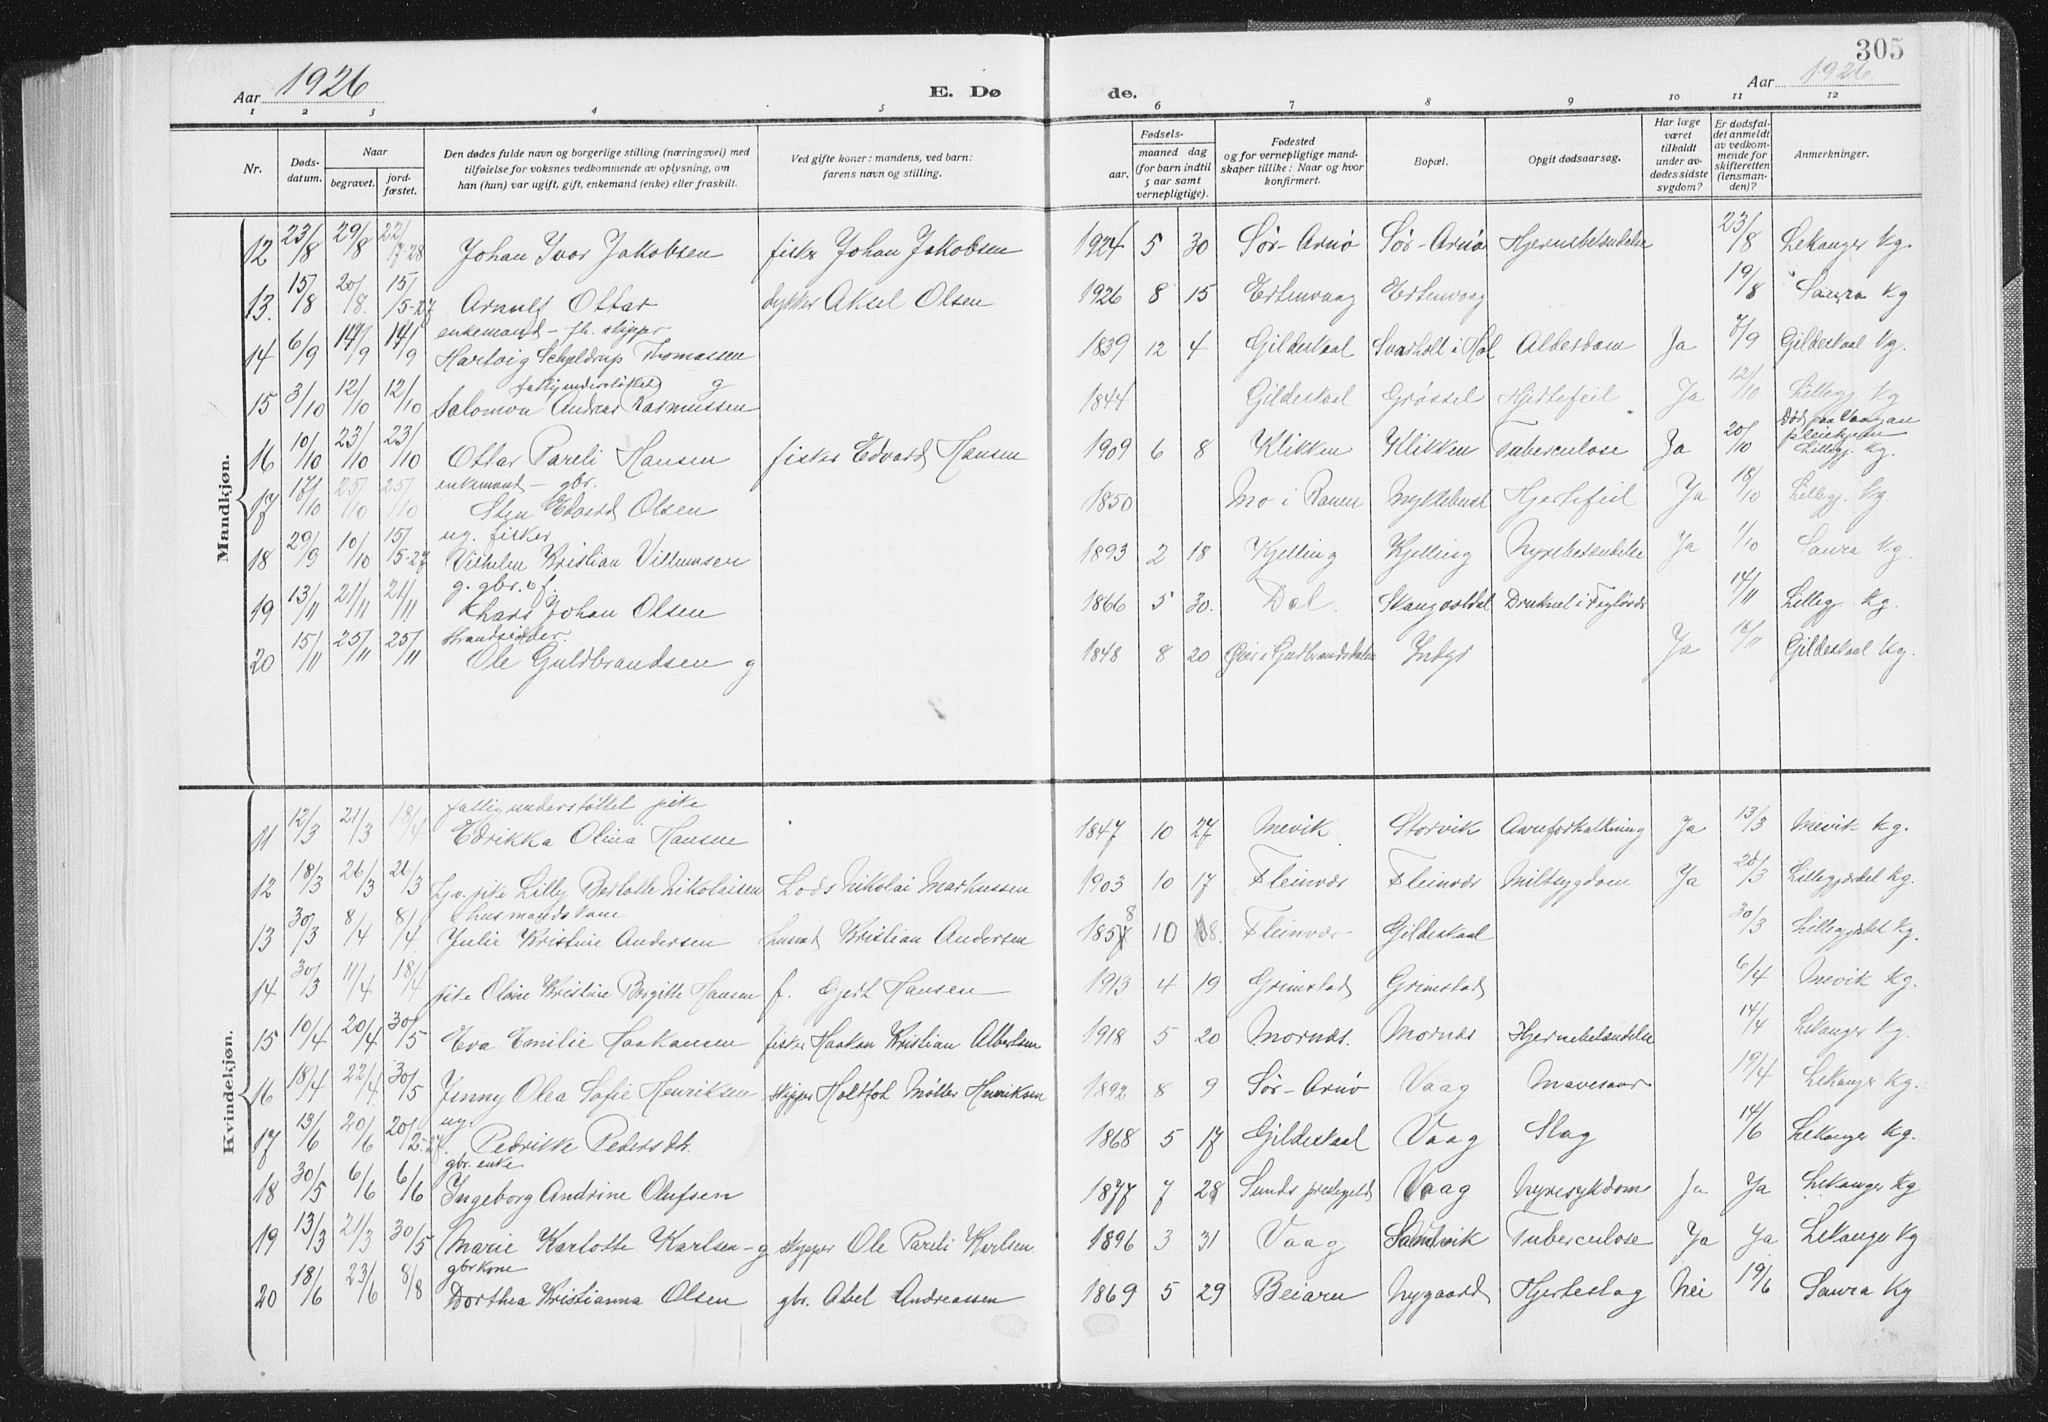 305
Aar 1926 E. Dø de. Aar 1926
1 2 3 4 5 6 7 8 9 10 11 12
Nr. Døds-datum. Naar begravet. jord-fæstet. Den dødes fulde navn og borgerlige stilling (næringsvei) med tilføielse for voksnes vedkommende av oplysning, om han (hun) var ugift, gift, enkemand (enke) eller fraskilt. Ved gifte koner: mandens, ved barn: farens navn og stilling. Fødsels- aar. maaned dag (for barn indtil 5 aar samt vernepligtige). Fødested og for vernepligtige mandskaper tillike: Naar og hvor konfirmert. Bopæl. Opgit dødsaarsag. Har læge været tilkaldt under avdødes sidste sygdom? Er dødsfaldet anmeldt av vedkommende for skifteretten (lensmanden)? Anmerkninger.
Mandkjøn.
12 23/8 29/8 22/7-28 Johan Ivar Jakobsen fisker Johan Jakobsen 1924 5 30 Sør-Arnø Sør-Arnø Hjernebetændelse 23/8 Lekanger Kg.
13. 15/8 20/8. 15/5-27 Arnulf Ottar dykker Aksel Olsen 1926 8 15 Ertenvaag Ertenvaag 19/8 Saura Kg
enkemand - fh. skipper
14 6/9 14/9 14/9 Hartvig Schjeldrup Thomassen 1839 12 4 Gildeskaal Svarholt i Hol Alderdom Ja 8/9 Gildeskaal Kg.
fattigunderstøttet g
15 3/10 12/10 12/10 Salomon Andreas Rasmussen 1844 Gildeskaal Grøssel Hjertefeil Ja 12/10 Lillegj Kg
16 10/10 23/10 23/10 Ottar Pareli Hansen fisker Edvard Hansen 1909 6 8 Klikken Klikken Tuberculose Ja 20/10 Død paa Vaagan pleiehjem Lillegj. Kg.
enkemand - gbr.
17 17/10 25/10 25/10 Sten Edvard Olsen 1850 Mo i Ranen Nykkebust Hjertefeil Ja 18/10 Lillegj. Kg.
ug. fisker
18 29/9 10/10 15/5-27 Vilhelm Kristian Villumsen 1893 2 18 Kjelling Kjelling Nyrebetændelse Ja 1/10 Saura Kg.
g. gbr. o f.
19 13/11 21/11 21/11 Johan Olsen 1866 5 30. Dal. Druknet i 14/11 Lillegj Kg.
strandsidder.
20 15/11 25/11 25/11 Ole Guldbrandsen g 1848 8 20 Øier i Gudbrandsdalen Indyr Ja 16/11 Gildeskaal Kg.
Kvindekjøn.
fattigunderstøttet pike
11 12/3 21/3 18/4 Edrikka Olina Hansen 1847 10 27 Mevik Storvik Aareforkalkning Ja 13/3 Mevik Kg.
12 18/3 26/3 26/3 Hj.v. pike Lilly Berlotte Nikolaisen Lods Nikolai Markussen 1903 10 17 Fleinvær Fleinvær Miltsygdom Ja 20/3 Lillegjærdet Kg.
husmandskone
13 30/3 8/4 8/4 Julie Kristine Andersen husmd Kristian Andersen 1858 10 18. Fleinvær Gildeskaal 30/3 Lillegjærdet Kg.
14 30/3 11/4 18/4 pike Oline Kristine Bergitte Hansen f. Gert Hansen 1913 4 19 Grimstad Grimstad 6/4 Mevik Kg.
15 10/4 20/4 30/5 Eva Emilie Haakansen fisker Haakon Kristian Albertsen 1918 5 20 Mornæs. Mornæs Hjernebetændelse 14/4 Lekanger Kg.
16 18/4 22/4 30/5 Jinny Olea Sofie Henriksen skipper Holtfod Møller Henriksen 1892 8 9 Sør-Arnø Vaag Mavesaar 19/4 Lekanger Kg.
ug.
17 13/6 20/6 20/2-27. Pedrikke Pedersdtr. 1868 5 17 Gildeskaal Vaag Slag 14/6 Lekanger Kg.
gbr. enke
18 30/5 6/6 6/6 Ingeborg Andrine Olufsen 1877 7 28 Sunds prestegjeld Vaag Nyresykdom Ja Ja Lekanger Kg
19 13/3 21/3 30/5 Marie Karlotte Karlsen - g skipper Ole Pareli Karlsen. 1896 3 31 Vaag Sandvik Tuberculose Ja Ja Lekanger Kg
gbrkone
20 18/6 23/6 8/8 Dorthea Kristianna Olsen gbr. Abel Andreassen 1869 5 29 Beiarn Nygaard Hjerteslag Nei 19/6 Saura Kg